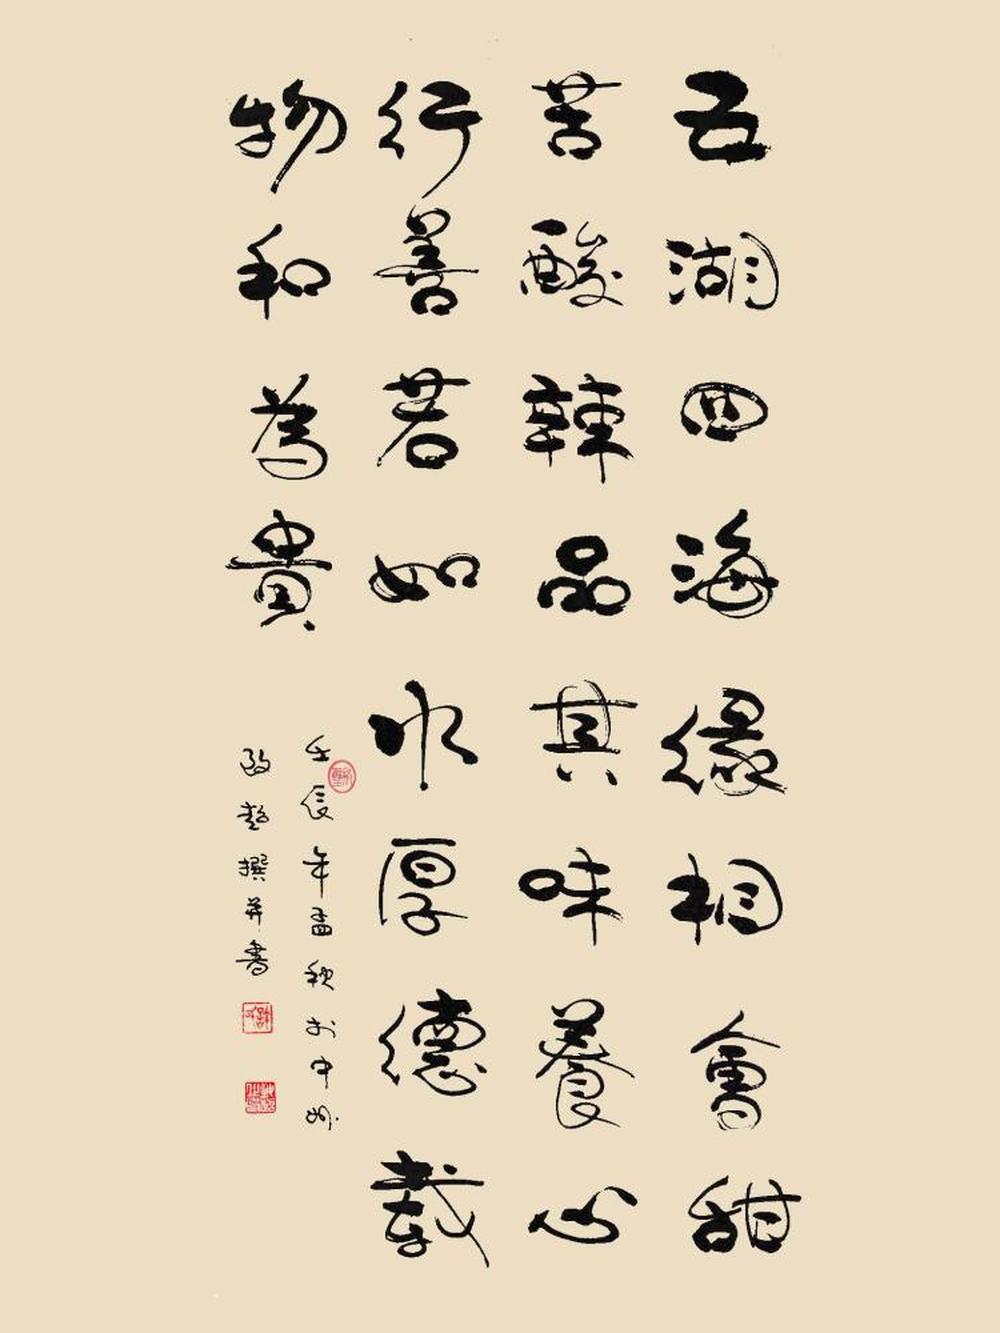 五湖四海緣相會甜
苦酸辣品其味養心
行善若如水厚德載
物和為貴
壬辰年孟秋於中州
撰並書